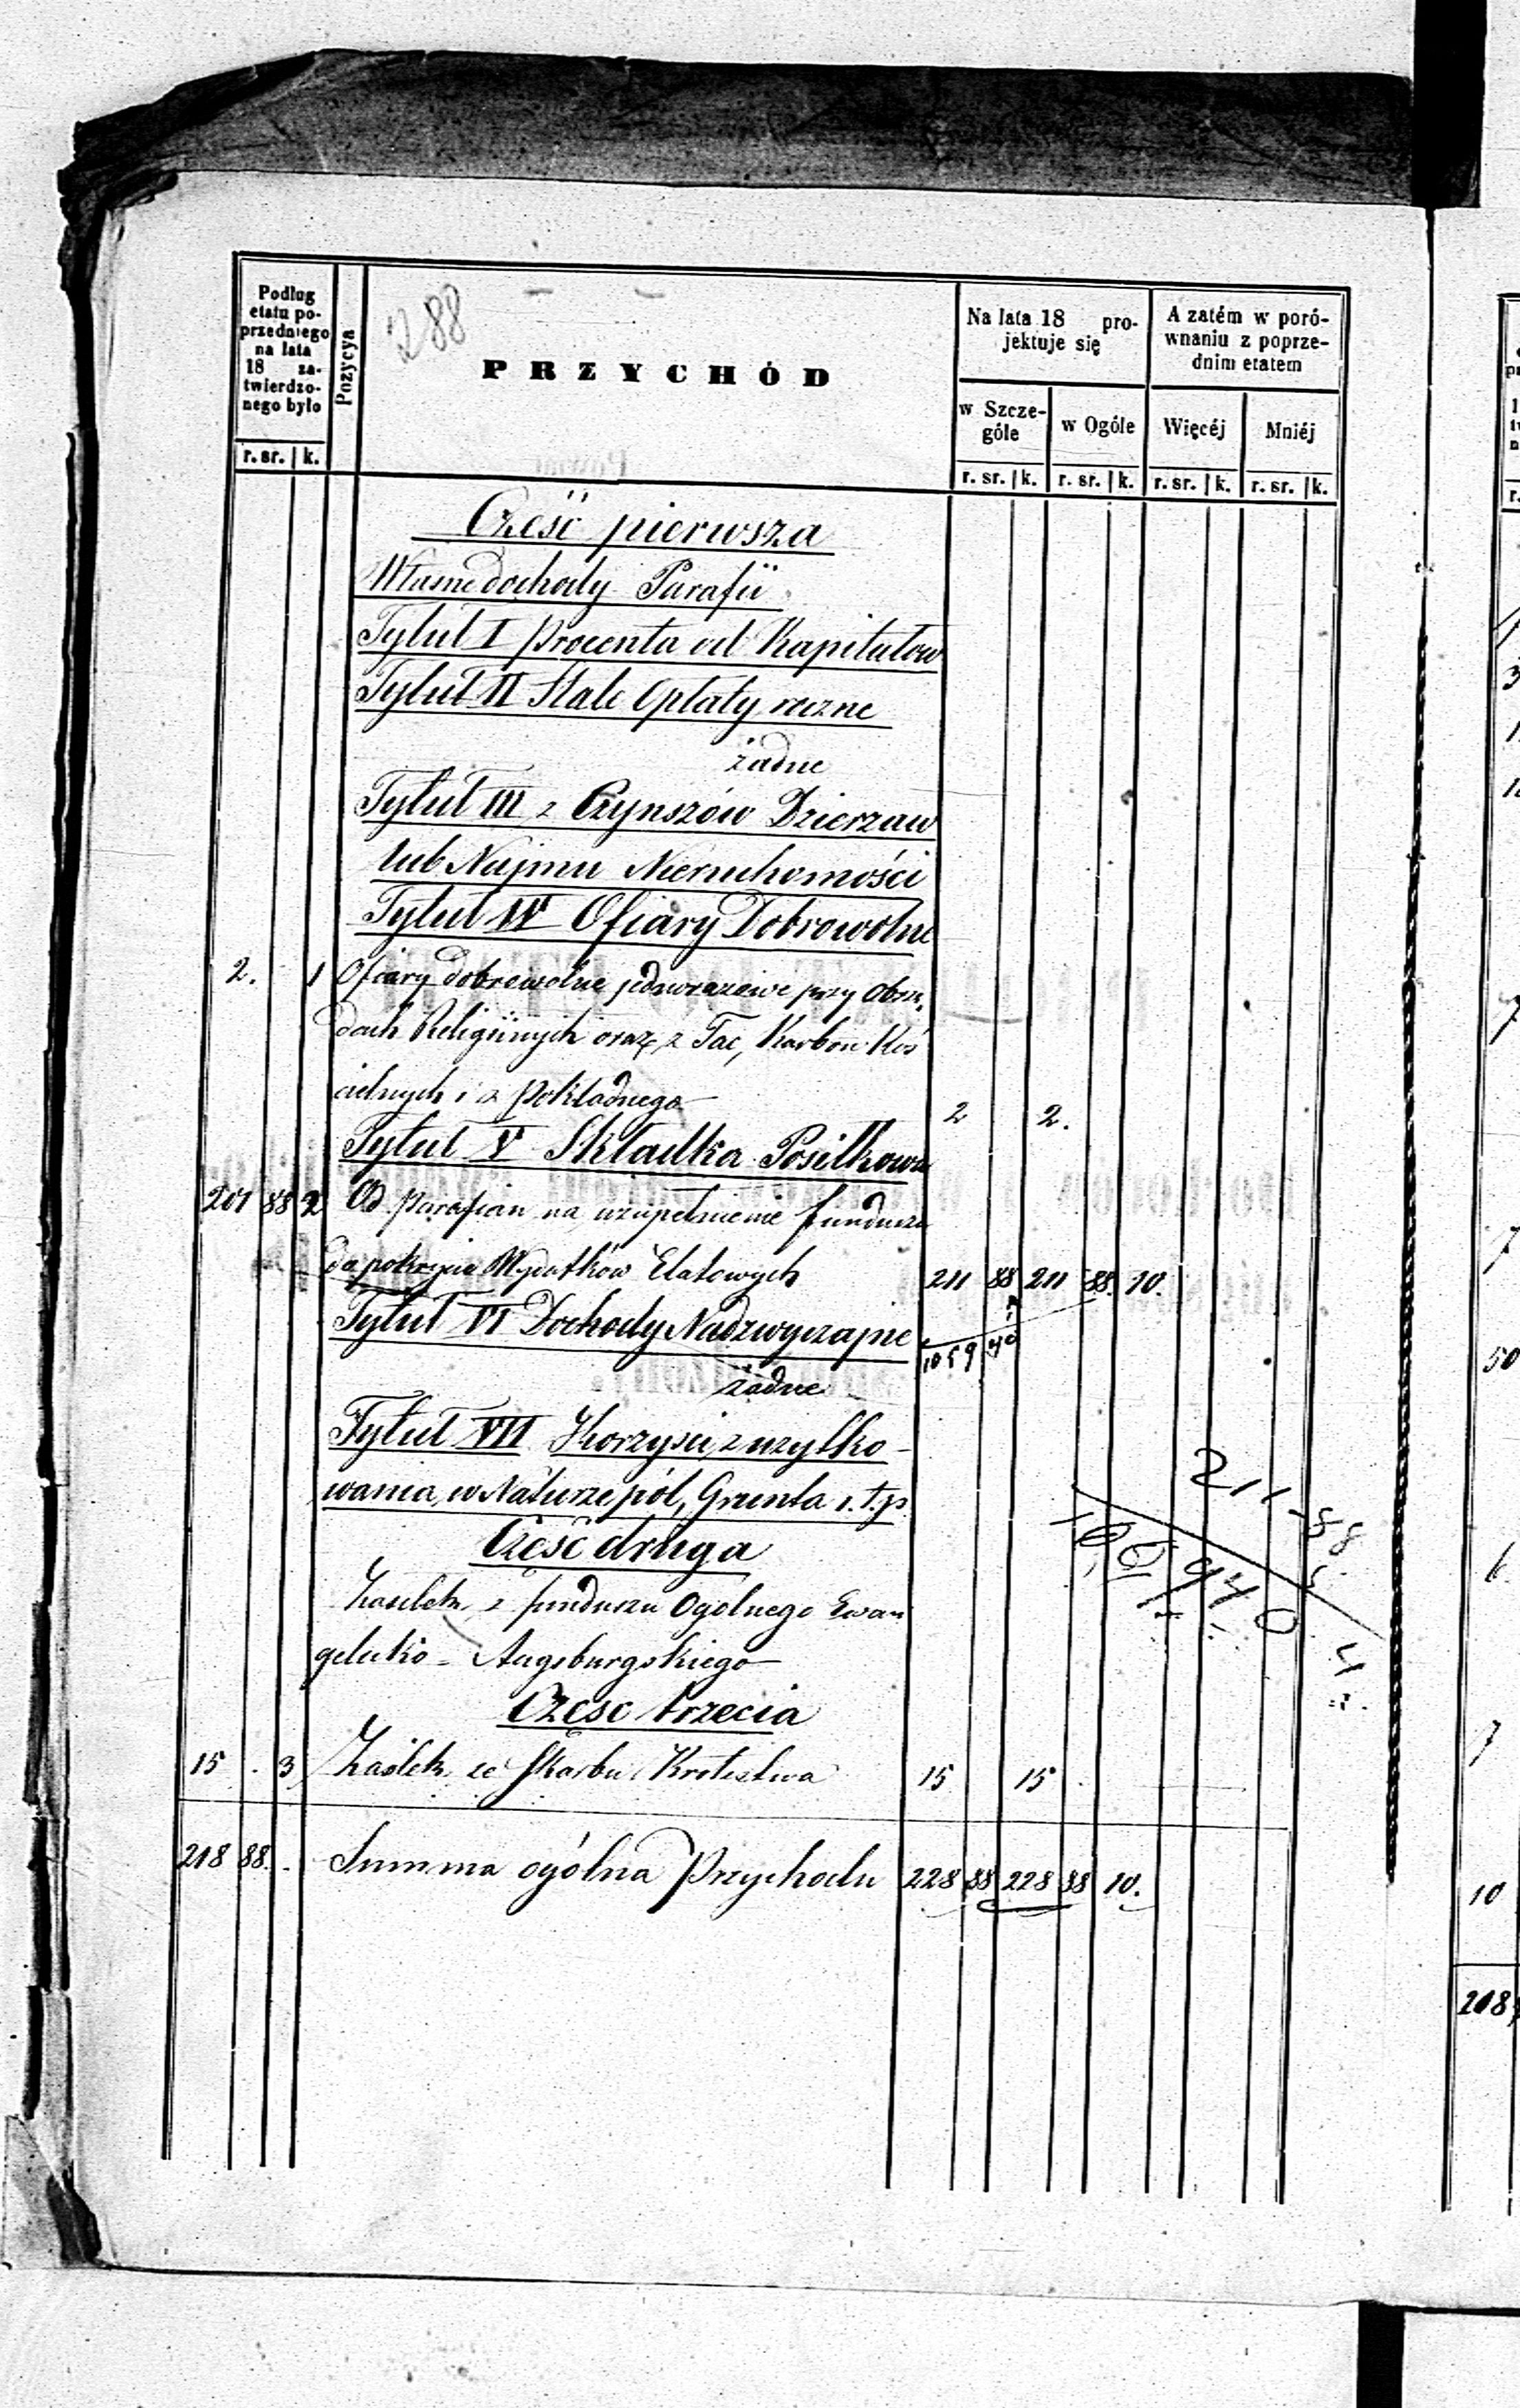 288
Podlug
etatu po-
przedniego
na lata
18 za-
twierdzo-
nego bylo
r. sr. k.
Pozycya
PRZYCHÓD
Na lata 18 pro-
jektuje się
w Szcze-
góle
w Ogóle
r. sr. k. r. sr. k.
A zatém w poró-
wnaniu z poprze-
dnim etatem
Więcéj
Mniéj
r. sr. k. r. sr. k.
Cześć pierwsza
Własne dochody Parafii
Tytuł I Procenta od Kapitałow
Tytuł II Stałe Opłaty roczne
żadne
Tytuł III z Czynszów Dzierzaw
lub Najmu Nieruchomości
Tytuł IV Ofiary Dobrowolne
2. 1 Ofiary dobrowolne jednorazowe przy Obrzę
dach Religiinych oraz z Tac, Karbon Koś
cielnych i z pokładnego 2 2.
Tytuł V Składka Posiłkowa
201 88 2 Od Parafian na uzupełnienie funduszu
do pokrycia Wydatków Etatowych 211 88 211 88. 10.
Tytuł VI Dochody Nadzwyczajne
1059 40
żadne
Tytuł VII Korzysci z uzytko-
wania w Naturze pól, Grunta i. t. p.
211 88
Cześć druga
Zasiłek z funduszu Ogolnego Ewan
gelicko - Augsburgskiego
Częsc trzecia
15 . 3 Zasiłek ze Skarbu Krolestwa 15 15 .
218 88. . Summa ogólna Przychodu 228 88 228 88 10.
50
10